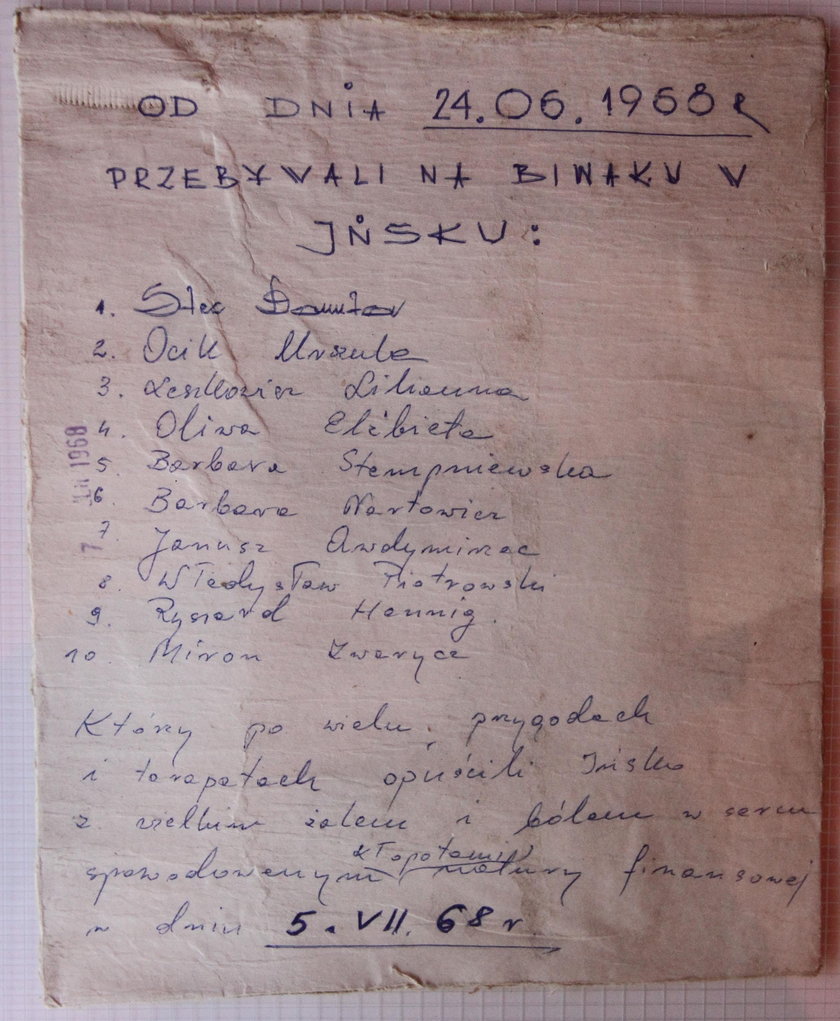 OD DNIA 24.06.1968 R
PRZEBYWALI NA BIWAKU V
JŃSKU:
1. Stec
2. Ocik Urszula
3. Leszkowicz Lilianna
4. Oliwa Elżbieta
5. Barbara Stempniewska
6. Barbara Nartowicz
7. Janusz Awdymirec
8. Władysław Piotrowski
9. Ryszard Hennig.
10 Miron Zwarycz
Którzy po wielu przygodach
i tarapatach opuścili Ińsko
z wielkim żalem i bólem w sercu
kłopotami
spowodowanym natury finansowej
w dniu 5. VII. 68 r.
7 VII 1968